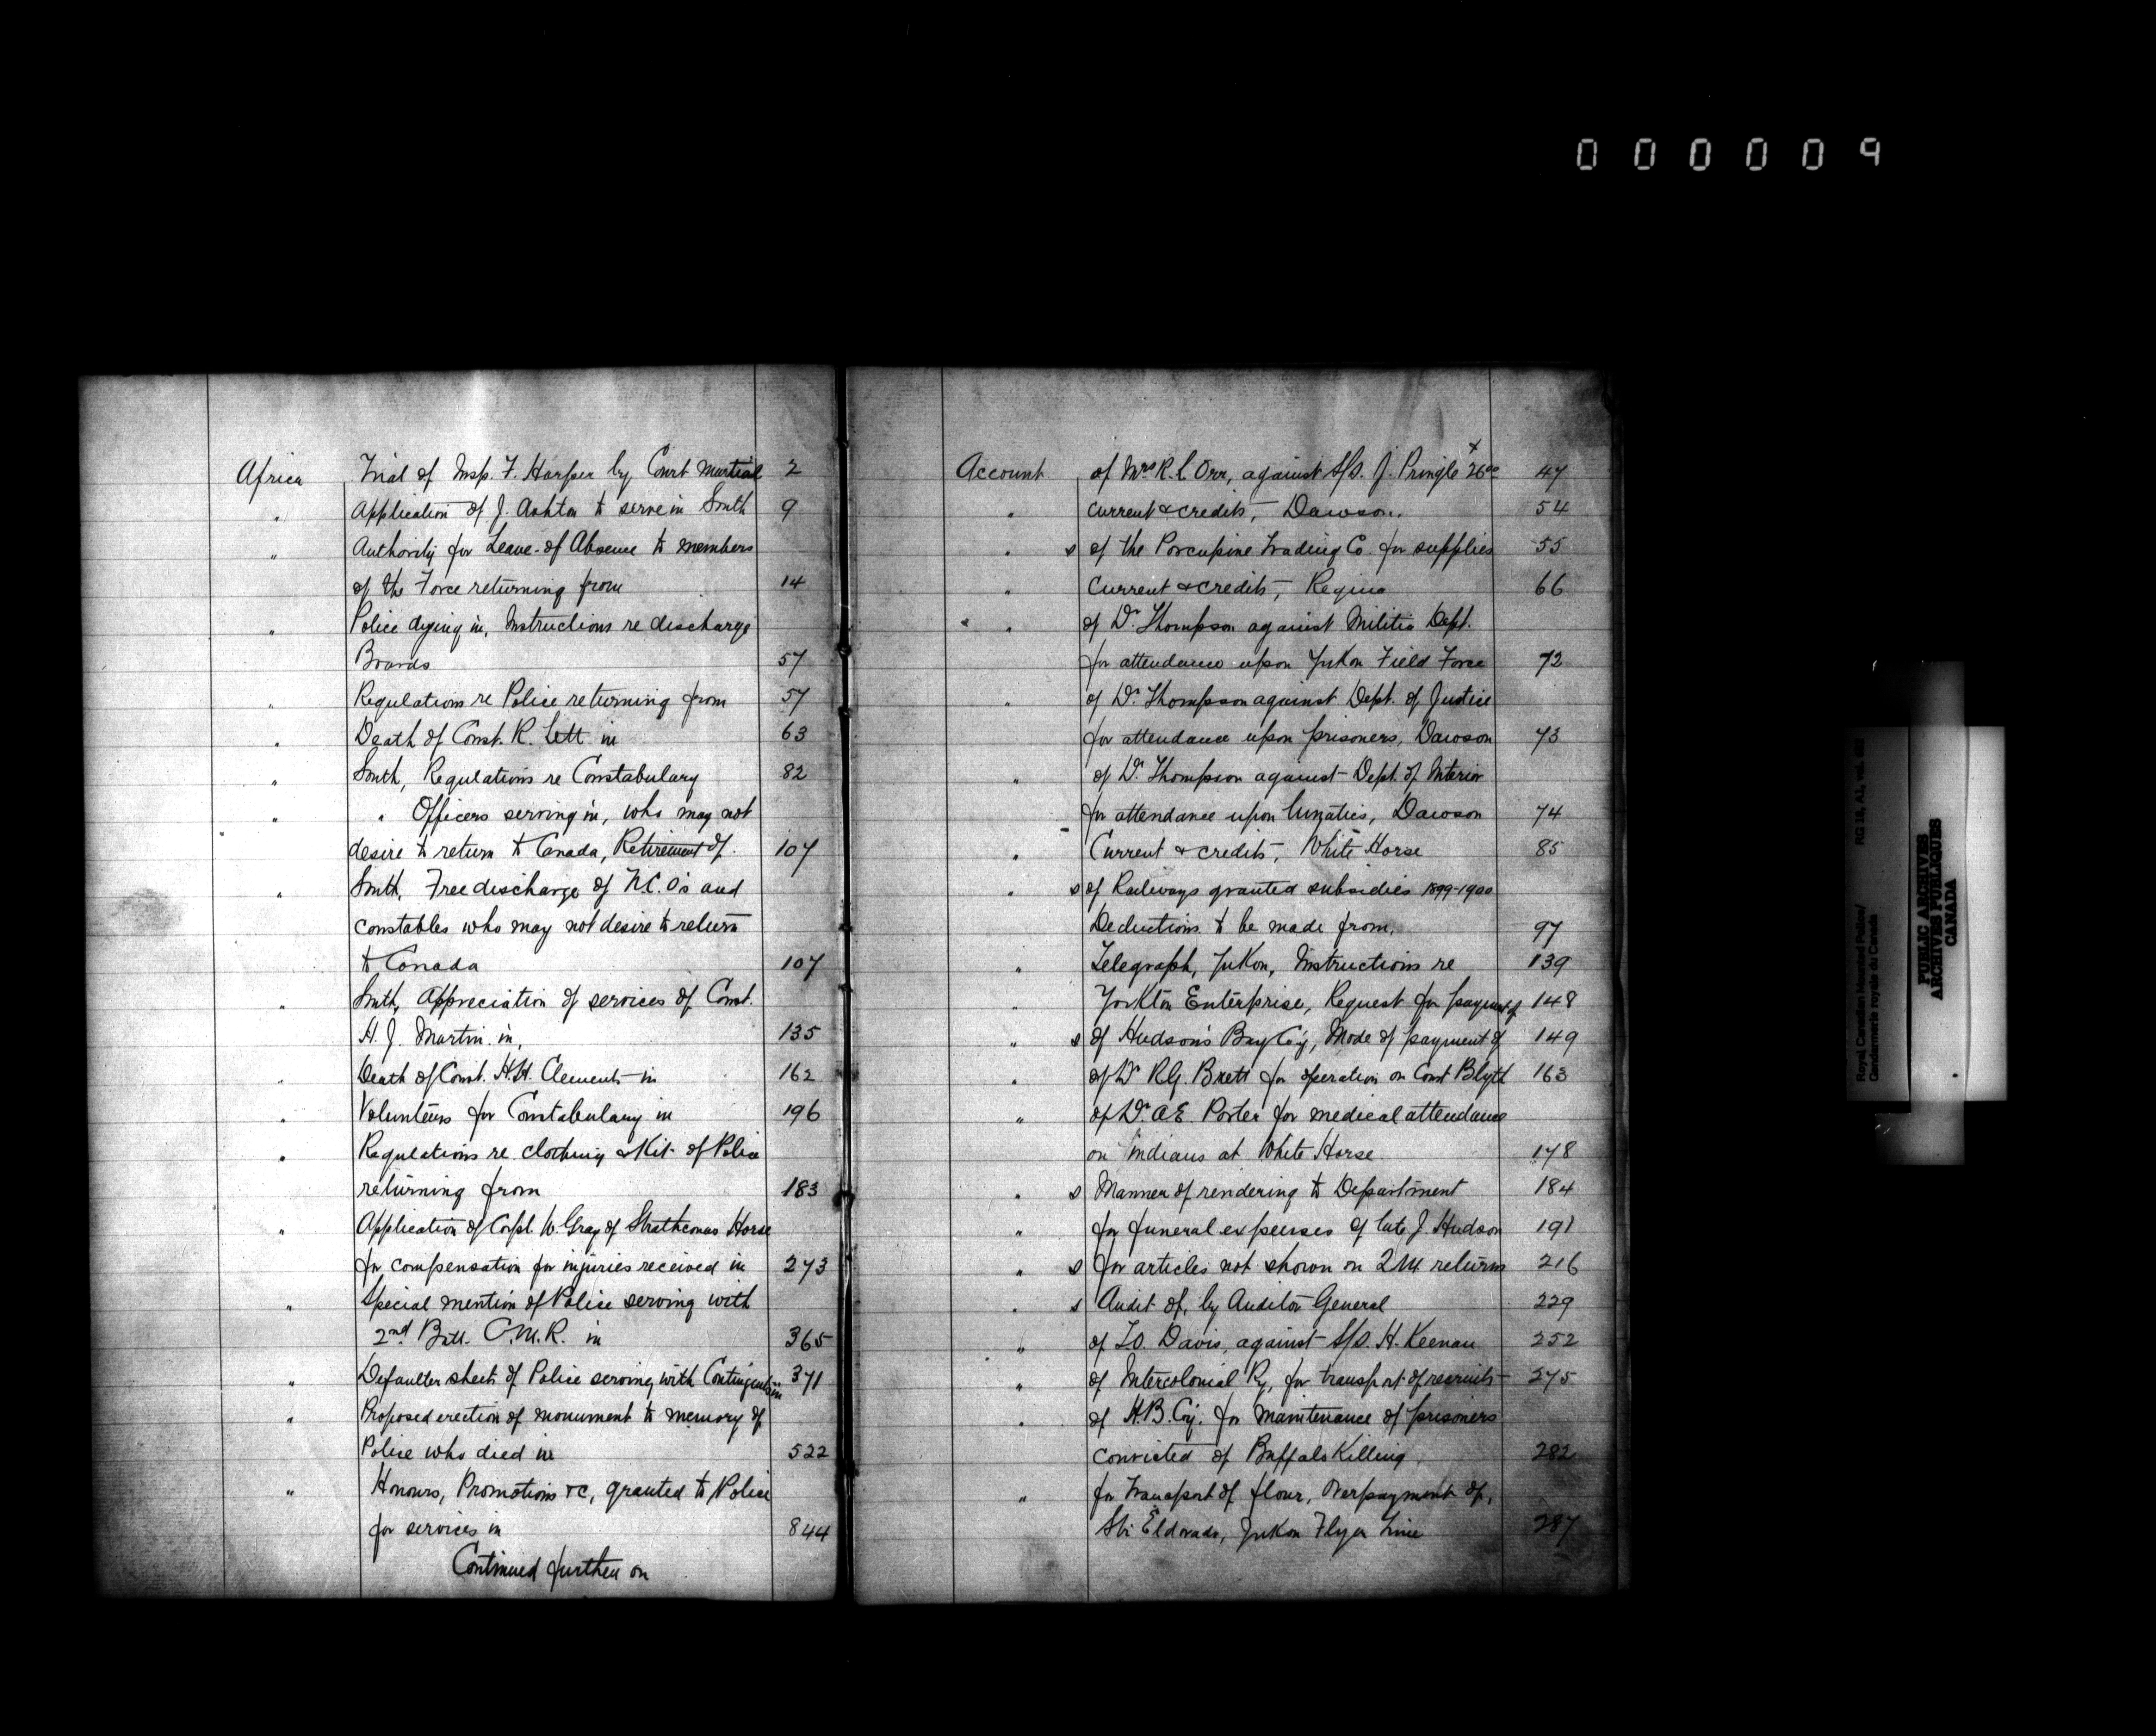 000009
Africa Trial of Insp. F. Harper by Court Martial 2
" Application of J. Ashton to serve in South 9
" Authority for Leave of Absence to members
of the Force returning from 14
" Police dying in, Instructions re discharge
Boards 57
" Regulations re Police returning from 57
" Death of Const. R. Lett in 63
" South, Regulations re Constabulary 82
" " Officers serving in, who may not
desire to return to Canada, Retirement of. 107
" South, Free discharge of N.C.O's and
constables who may not desire to return
to Canada 107
" South, Appreciation of services of Const.
H. J. Martin in, 135
" Death of Const. H.H. Clements in 162
" Volunteers for Constabulary in 196
" Regulations re clothing & Kit of Police
returning from 183
" Application of Corpl. W. Gray of Strathconas Horse
for compensation for injuries received in 273
" Special mention of Police serving with
2nd Batt. C.M.R. in 365
" Defaulter sheets of Police serving with Contingents in 371
" Proposed erection of monument to memory of
Police who died in 522
" Honours, Promotions &c, granted to Police
for services in 844
Continued further on
Account of Mrs R. L. Orr, against S/S. J. Pringle 26 00 x 47
" Current & credits, Dawson. 54
" s of the Porcupine Trading Co. for supplies 55
" Current & credits, Regina 66
" of Dr. Thompson against Militia Dept.
for attendance upon Yukon Field Force 72
" of Dr. Thompson against Dept. of Justice
for attendance upon prisoners, Dawson 73
" of Dr. Thompson against Dept. of Interior
for attendance upon lunatics, Dawson 74
" Current & credits, White Horse 85
" s of Railways granted subsidies 1899-1900
Deductions to be made from, 97
" Telegraph, Yukon, Instructions re 139
" Yorkton Enterprise, Request for payment of 148
" s of Hudson's Bay Co'y, Mode of payment of 149
" of Dr R.G. Brett for operation on Const Blyth 163
" of Dr. A.E. Porter for medical attendance
on Indians at White Horse 178
" s Manner of rendering to Department 184
" for funeral expenses of late J. Hudson 191
" s for articles not shown on 2M returns 216
" s Audit of, by Auditor General 229
" of T.O. Davis, against S/S. H. Keenan 252
" of Intercolonial Ry, for transport of recruits 275
" of H.B. Coy. for maintenance of prisoners
convicted of Buffalo Killing 282
" for Transport of flour, Overpayment of,
Str Eldorado, Yukon Flyer Line 287
Royal Canadian Mounted Police/ RG 18, A1, vol.
Gendarmerie royale du Canada
PUBLIC ARCHIVES
ARCHIVES PUBLIQUES
CANADA